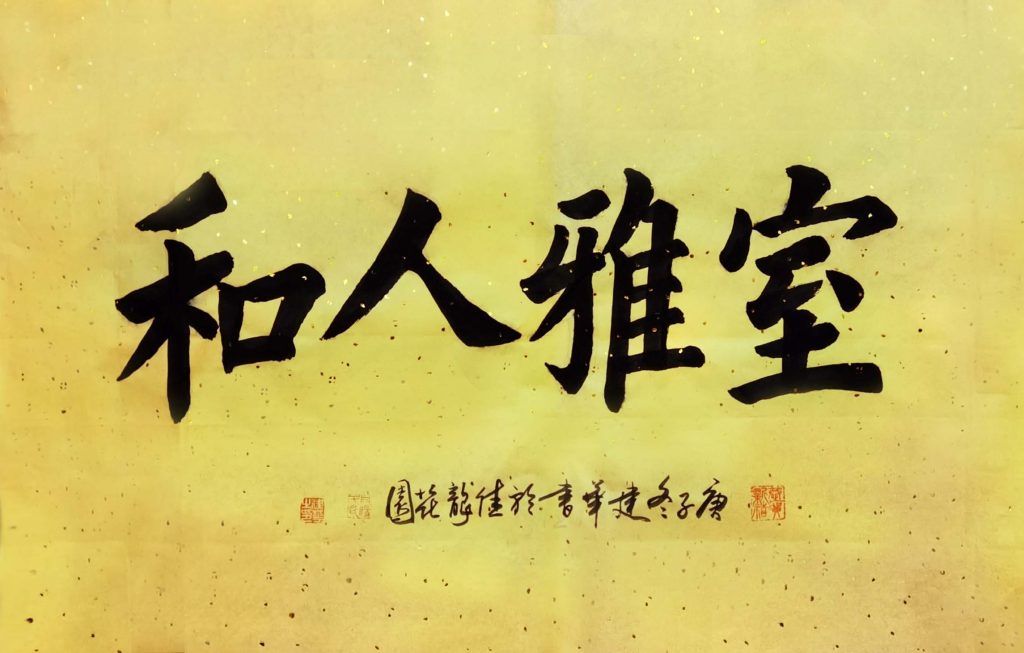 室雅人和
庚子冬建华書於佳龍花園